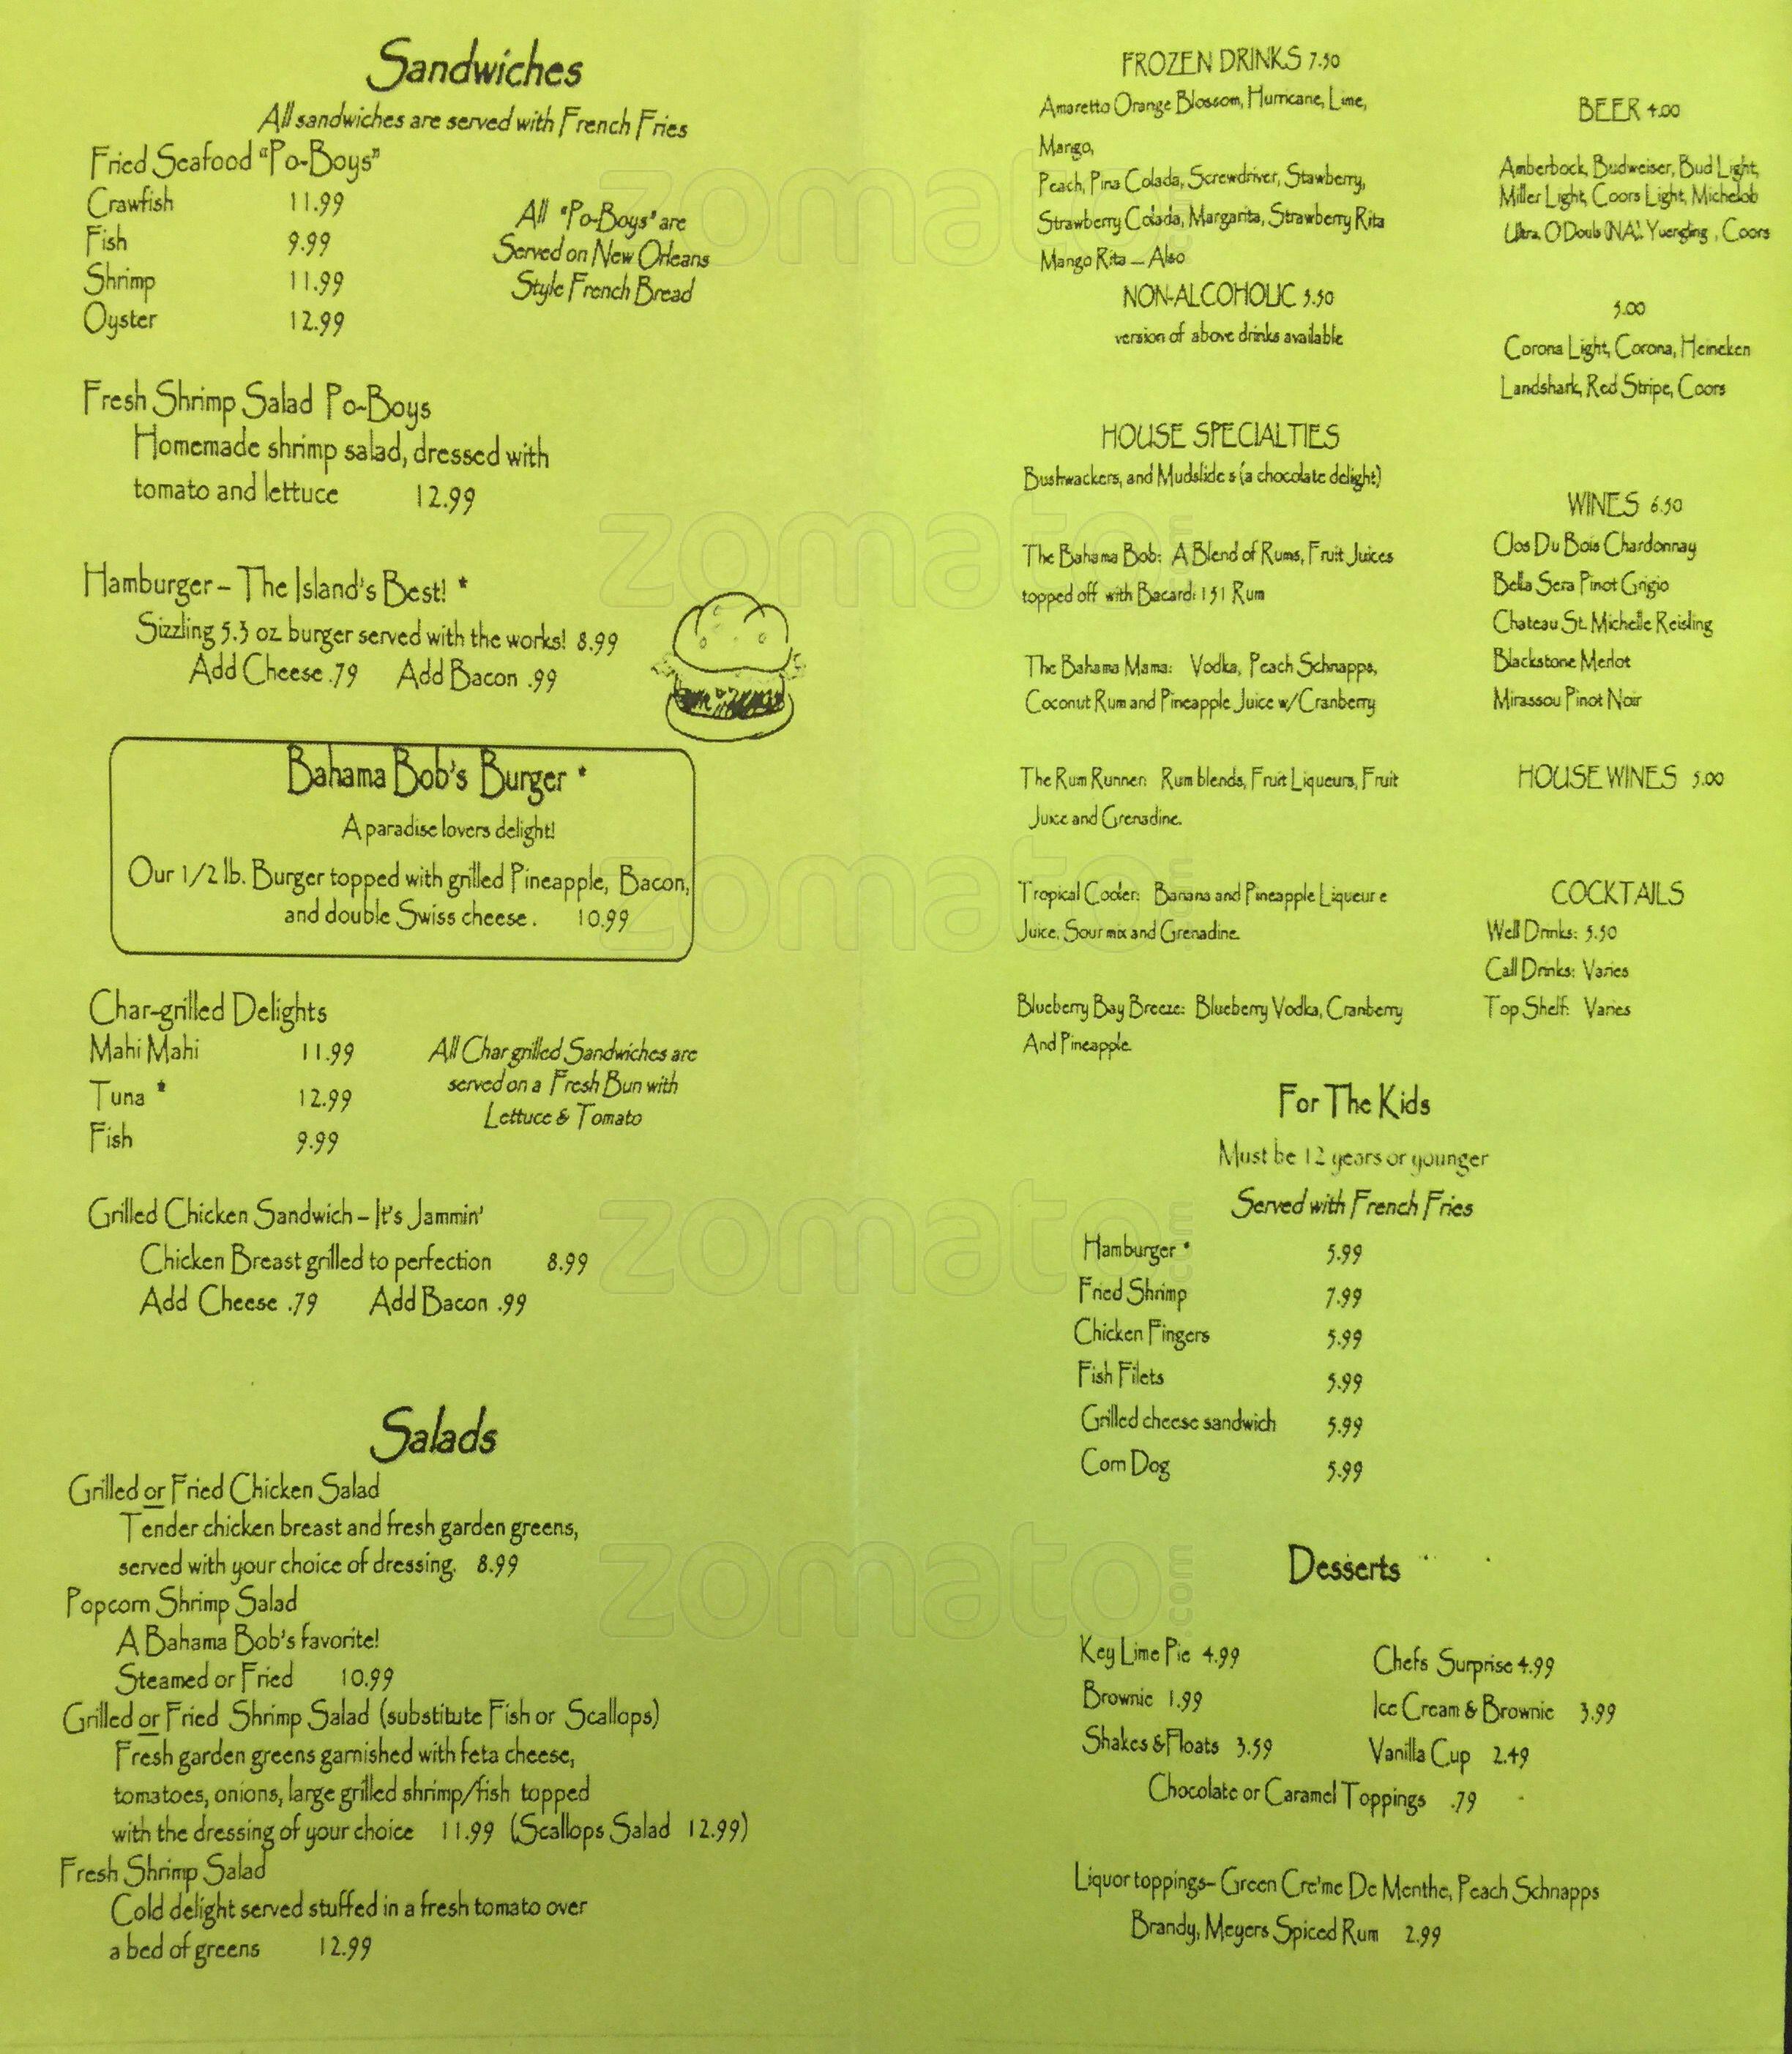 Sandwiches
All sandwiches are served with French Fries
Fried Seafood "Po-Boys"
Crawfish 11.99
Fish 9.99
Shrimp 11.99
Oyster 12.99
All "Po-Boys" are
Served on New Orleans
Style French Bread
Fresh Shrimp Salad Po-Boys
Homemade shrimp salad, dressed with
tomato and lettuce 12.99
Hamburger – The Island's Best! *
Sizzling 5.3 oz. burger served with the works! 8.99
Add Cheese .79 Add Bacon .99
Bahama Bob's Burger *
A paradise lovers delight!
Our 1/2 lb. Burger topped with grilled Pineapple, Bacon,
and double Swiss cheese. 10.99
Char-grilled Delights
Mahi Mahi 11.99
Tuna * 12.99
Fish 9.99
All Char grilled Sandwiches are
served on a Fresh Bun with
Lettuce & Tomato
Grilled Chicken Sandwich – It's Jammin'
Chicken Breast grilled to perfection 8.99
Add Cheese .79 Add Bacon .99
Salads
Grilled or Fried Chicken Salad
Tender chicken breast and fresh garden greens,
served with your choice of dressing. 8.99
Popcorn Shrimp Salad
A Bahama Bob's favorite!
Steamed or Fried 10.99
Grilled or Fried Shrimp Salad (substitute Fish or Scallops)
Fresh garden greens garnished with feta cheese,
tomatoes, onions, large grilled shrimp/fish topped
with the dressing of your choice 11.99 (Scallops Salad 12.99)
Fresh Shrimp Salad
Cold delight served stuffed in a fresh tomato over
a bed of greens 12.99
FROZEN DRINKS 7.50
Amaretto Orange Blossom, Hurricane, Lime,
Mango,
Peach, Pina Colada, Screwdriver, Stawberry,
Strawberry Colada, Margarita, Strawberry Rita
Mango Rita – Also
NON-ALCOHOLIC 5.50
version of above drinks available
HOUSE SPECIALTIES
Bushwackers, and Mudslide s (a chocolate delight)
The Bahama Bob: A Blend of Rums, Fruit Juices
topped off with Bacardi 151 Rum
The Bahama Mama: Vodka, Peach Schnapps,
Coconut Rum and Pineapple Juice w/Cranberry
The Rum Runner: Rum blends, Fruit Liqueurs, Fruit
Juice and Grenadine.
Tropical Cooler: Banana and Pineapple Liqueur e
Juice, Sour mix and Grenadine
Blueberry Bay Breeze: Blueberry Vodka, Cranberry
And Pineapple
BEER 4.00
Amberbock, Budweiser, Bud Light,
Miller Light, Coors Light, Michelob
Ultra, O'Douls (NA), Yuengling , Coors
5.00
Corona Light, Corona, Heineken
Landshark, Red Stripe, Coors
WINES 6.50
Clos Du Bois Chardonnay
Bella Sera Pinot Grigio
Chateau St. Michelle Reisling
Blackstone Merlot
Mirassou Pinot Noir
HOUSE WINES 5.00
COCKTAILS
Well Drinks: 5.50
Call Drinks: Varies
Top Shelf: Varies
For The Kids
Must be 12 years or younger
Served with French Fries
Hamburger * 5.99
Fried Shrimp 7.99
Chicken Fingers 5.99
Fish Filets 5.99
Grilled cheese sandwich 5.99
Corn Dog 5.99
Desserts
Key Lime Pie 4.99
Brownie 1.99
Shakes & Floats 3.59
Chefs Surprise 4.99
Ice Cream & Brownie 3.99
Vanilla Cup 2.49
Chocolate or Caramel Toppings .79
Liquor toppings– Green Cre'me De Menthe, Peach Schnapps
Brandy, Meyers Spiced Rum 2.99
zomato.com
zomato.com
zomato.com
zomato.com
zomato.com